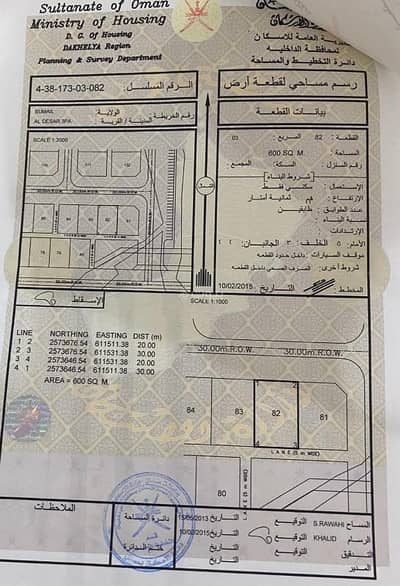 Sultanate of Oman
Ministry of Housing
D. G. Of Housing
DAKHELYA Region
Planning & Survey Department
محافظة الداخلية
دائرة التخطيط والمساحة
4-38-173-03-082
الرقم المسلسل:
رسم مساحي لقطعة أرض
SUMAIL
AL DESAR 3PA
الولاية:
المدينة / القرية
رقم الخريطة
بيانات القطعة
SCALE 1:2000
القطعة: 82 المربع: 03
المساحة: 600 SQ. M.
رقم المنزل: السكة: المجمع:
شروط البناء
الاستعمال: سكني فقط
عدد الطوابق: طابقين
نسبة البناء:
الارتدادات:
الأمام: 5 الخلف: 3 الجانبان:
موقف السيارات: داخل حدود القطعة
شروط أخرى: الصرف الصحي داخل القطعة
المخطط: التاريخ: 10/02/2015
الإسقاط:
SCALE 1:1000
30.00m.R.O.W. 30.00m.R.O.W.
LINE NORTHING EASTING DIST (m)
1 2 2573676.54 611511.38 20.00
2 3 2573676.54 611531.38 30.00
3 4 2573646.54 611531.38 20.00
4 1 2573646.54 611511.38 30.00
AREA = 600 SQ. M.
1 2
84 83 82 81
4 3
LANE (5 m WIDE)
80
الملاحظات
دائرة المساحة
ختم الدائرة
التاريخ
التوقيع
S.RAWAHI
المساح
10/02/2015
التاريخ
التوقيع
KHALID
الرسام
التاريخ
التوقيع
التدقيق
المدير